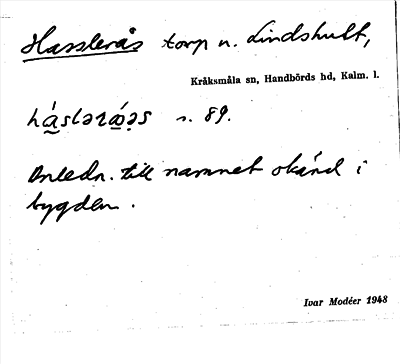 Hasslerås torp u. Lindshult,
Kråksmåla sn, Handbörds hd, Kalm. l.
s. 89.
Anledn. till namnet okänd i
bygden.
Ivar Modéer 1948